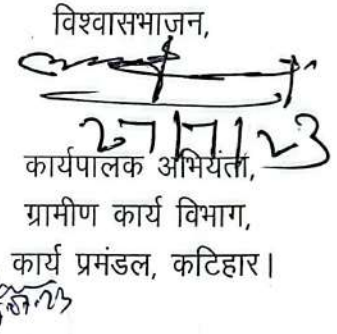 विश्वासभाजन,
27/7/23
कार्यपालक अभियंता,
ग्रामीण कार्य विभाग,
कार्य प्रमंडल, कटिहार।